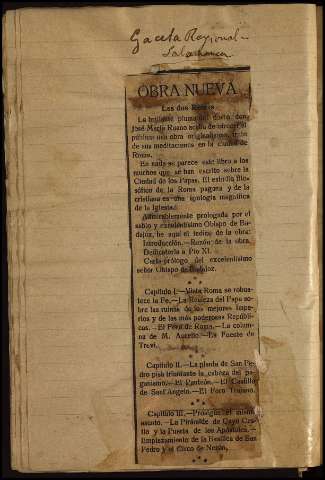 Gaceta Regional-
Salamanca
OBRA NUEVA
Las dos Romas
La brillante pluma del docto don
José María Ruano acaba de ofrecer al
público una obra originalísima, fruto
de sus meditaciones en la ciudad de
Roma.
En nada se parece este libro a los
muchos que se han escrito sobre la
Ciudad de los Papas. El estudio filo-
sófico de la Roma pagana y de la
cristiana es una apología magnífica
de la Iglesia.
Admirablemente prologada por el
sabio y excelentísimo Obispo de Ba-
dajoz, he aquí el índice de la obra:
Introducción.—Razón de la obra.
Dedicatoria a Pío XI.
Carta-prólogo del excelentísimo
señor Obispo de Badajoz.
Capítulo I.—Vista Roma se robus-
tece la Fe.—La Realeza del Papa so-
bre las ruinas de los mejores Impe-
rios y de las más poderosas Repúbli-
cas.—El Foro de Roma.—La colum-
na de M. Aurelio.—La Fuente de
Trevi.
Capítulo II.—La planta de San Pe-
dro pisa triunfante la cabeza del pa-
ganismo.—El Panteón.—El Castillo
de Sant'Angelo.—El Foro Trajano.
Capítulo III.—Prosigue el mismo
asunto.—La Pirámide de Cayo Ces-
tio y la Puerta de los Apóstoles.—
Emplazamiento de la Basílica de San
Pedro y el Circo de Nerón.